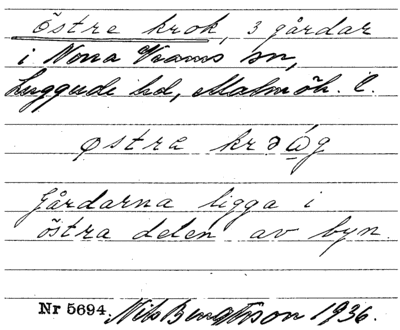 östre krok, 3 gårdar
i Norra Vrams sn,
Luggude hd, Malmöh. l.
østra krəώ̲g
Gårdarna ligga i
östra delen av byn.
Nr 5694. Nils Bengtsson 1936.